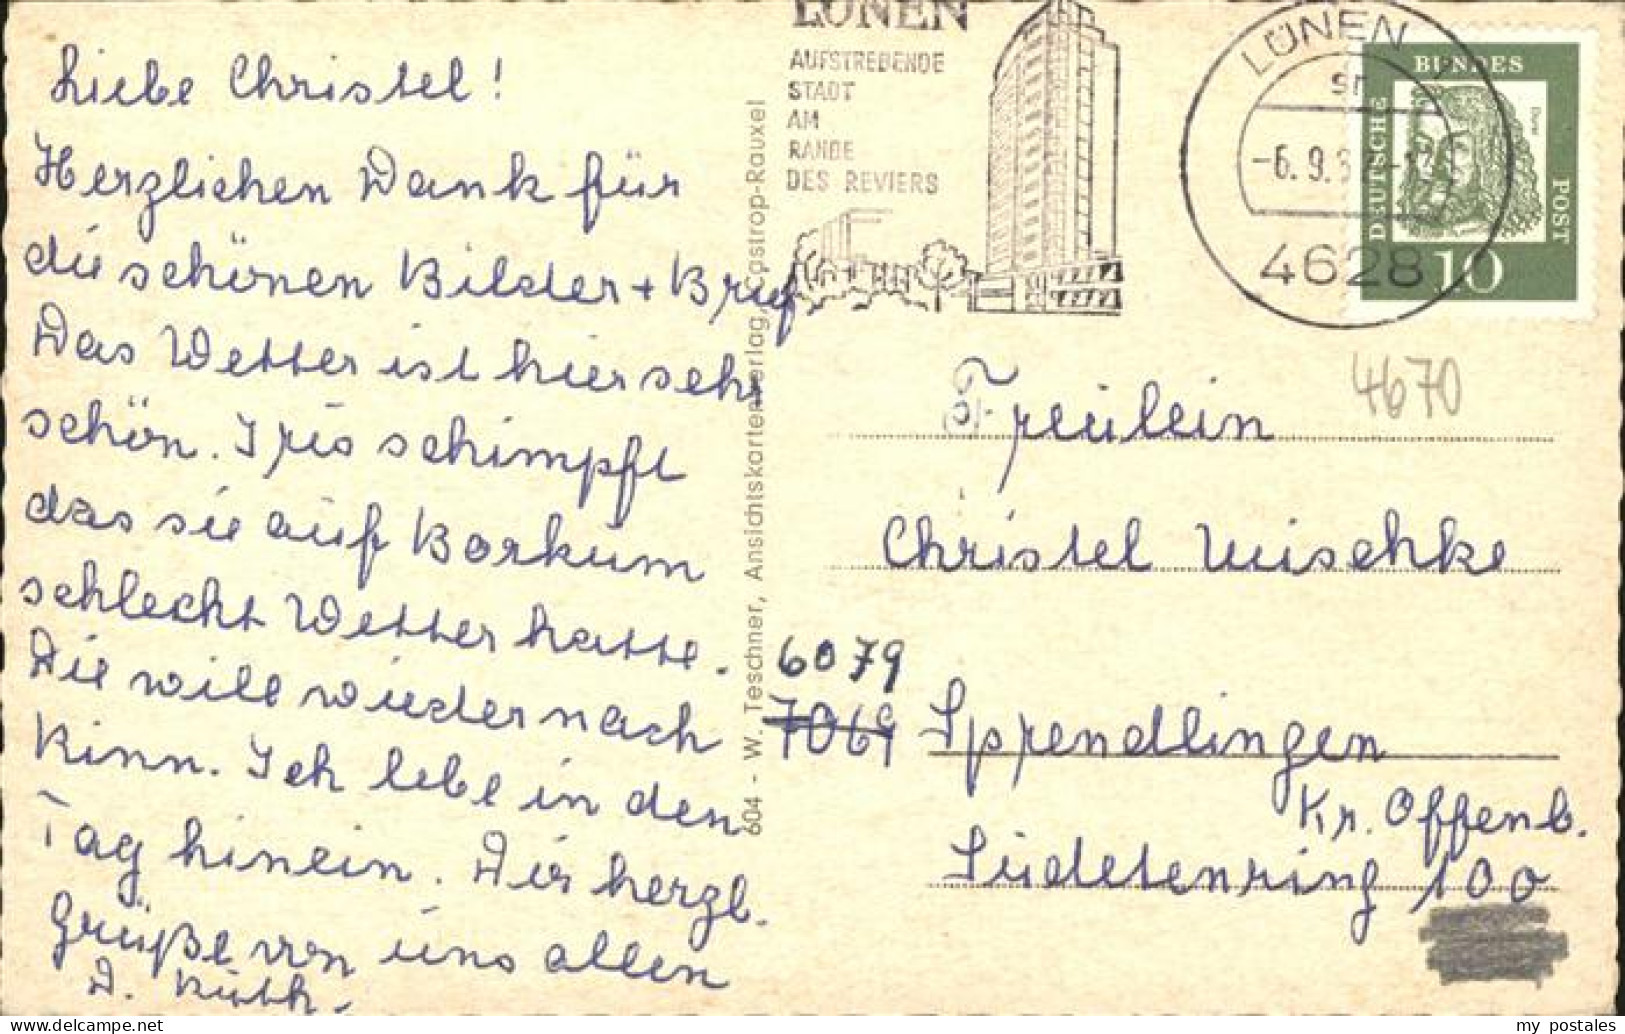 Liebe Christel!
Herzlichen Dank für
die schönen Bilder + Brief
Das Wetter ist hier sehr
schön. Iris schimpft
das sie auf Borkum
schlecht Wetter hatte.
Die will wieder nach
Kinn. Ich lebe in den
Tag hinein. Dir herzl.
Grüße von uns allen
D. Ruth.
604 - W. Teschner, Ansichtskartenverlag, Castrop-Rauxel
LÜNEN
AUFSTREBENDE
STADT
AM
RANDE
DES REVIERS
LÜNEN
-6. 9. 6
4628
DEUTSCHE BUNDES POST
10
4670
Freulein
Christel
6079
7069 Sprendlingen
Kr. Offenb.
Südetenring 100
my postales